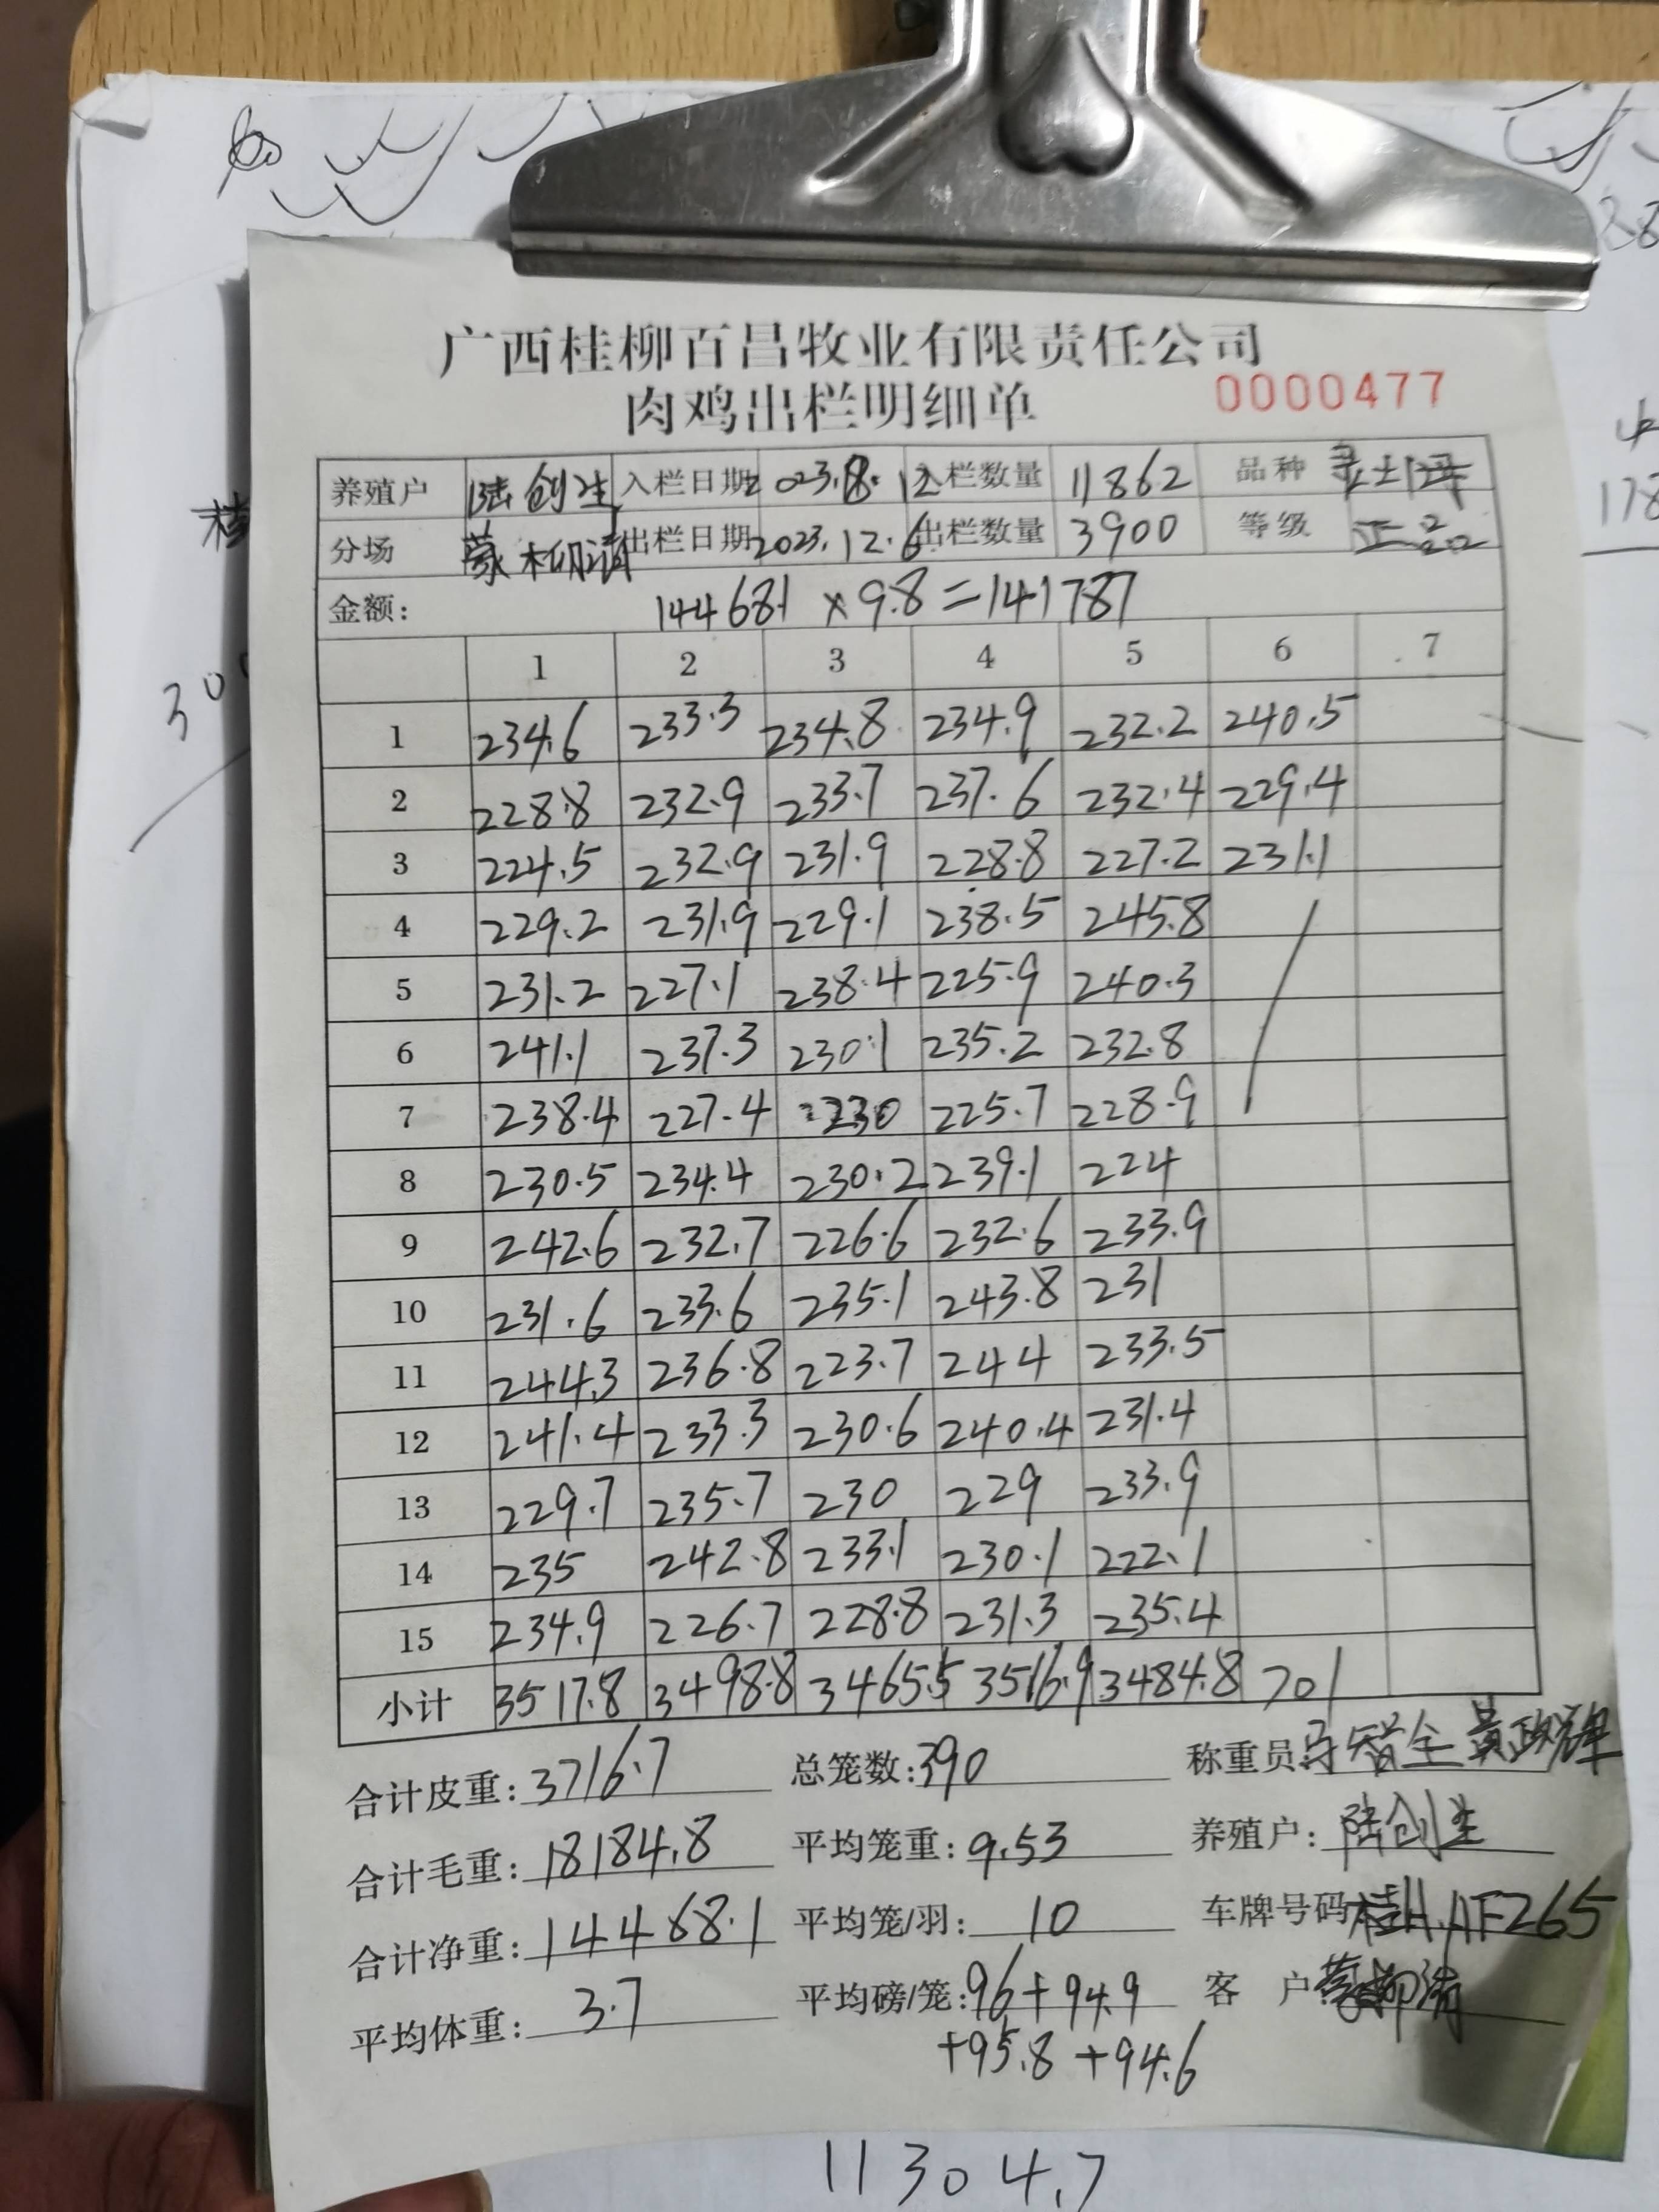 广西桂柳百昌牧业有限责任公司
肉鸡出栏明细单 0000477
养殖户 陆创生 入栏日期 2023.8.12 入栏数量 11862 品种
分场 蒙柳清 出栏日期 2023.12.6 出栏数量 3900 等级 正品
金额: 144681 × 9.8 = 141787
1 2 3 4 5 6 7
1 234.6 233.3 234.8 234.9 232.2 240.5
2 228.8 232.9 233.7 237.6 232.4 229.4
3 224.5 232.9 231.9 228.8 227.2 231.1
4 229.2 231.9 229.1 238.5 245.8
5 231.2 227.1 238.4 225.9 240.3
6 241.1 237.3 230.1 235.2 232.8
7 238.4 227.4 230 225.7 228.9
8 230.5 234.4 230.2 239.1 224
9 242.6 232.7 226.6 232.6 233.9
10 231.6 233.6 235.1 243.8 231
11 244.3 236.8 223.7 244 233.5
12 241.4 233.3 230.6 240.4 231.4
13 229.7 235.7 230 229 233.9
14 235 242.8 233.1 230.1 222.1
15 234.9 226.7 228.8 231.3 235.4
小计 3517.8 3498.8 3465.5 3516.9 3484.8 701
合计皮重: 3716.7 总笼数: 390 称重员: 黄政辉
合计毛重: 18184.8 平均笼重: 9.53 养殖户: 陆创生
合计净重: 14468.1 平均笼/羽: 10 车牌号码 桂H.AF265
平均体重: 3.7 平均磅/笼: 96+94.9 客户
+95.8+94.6
11304.7